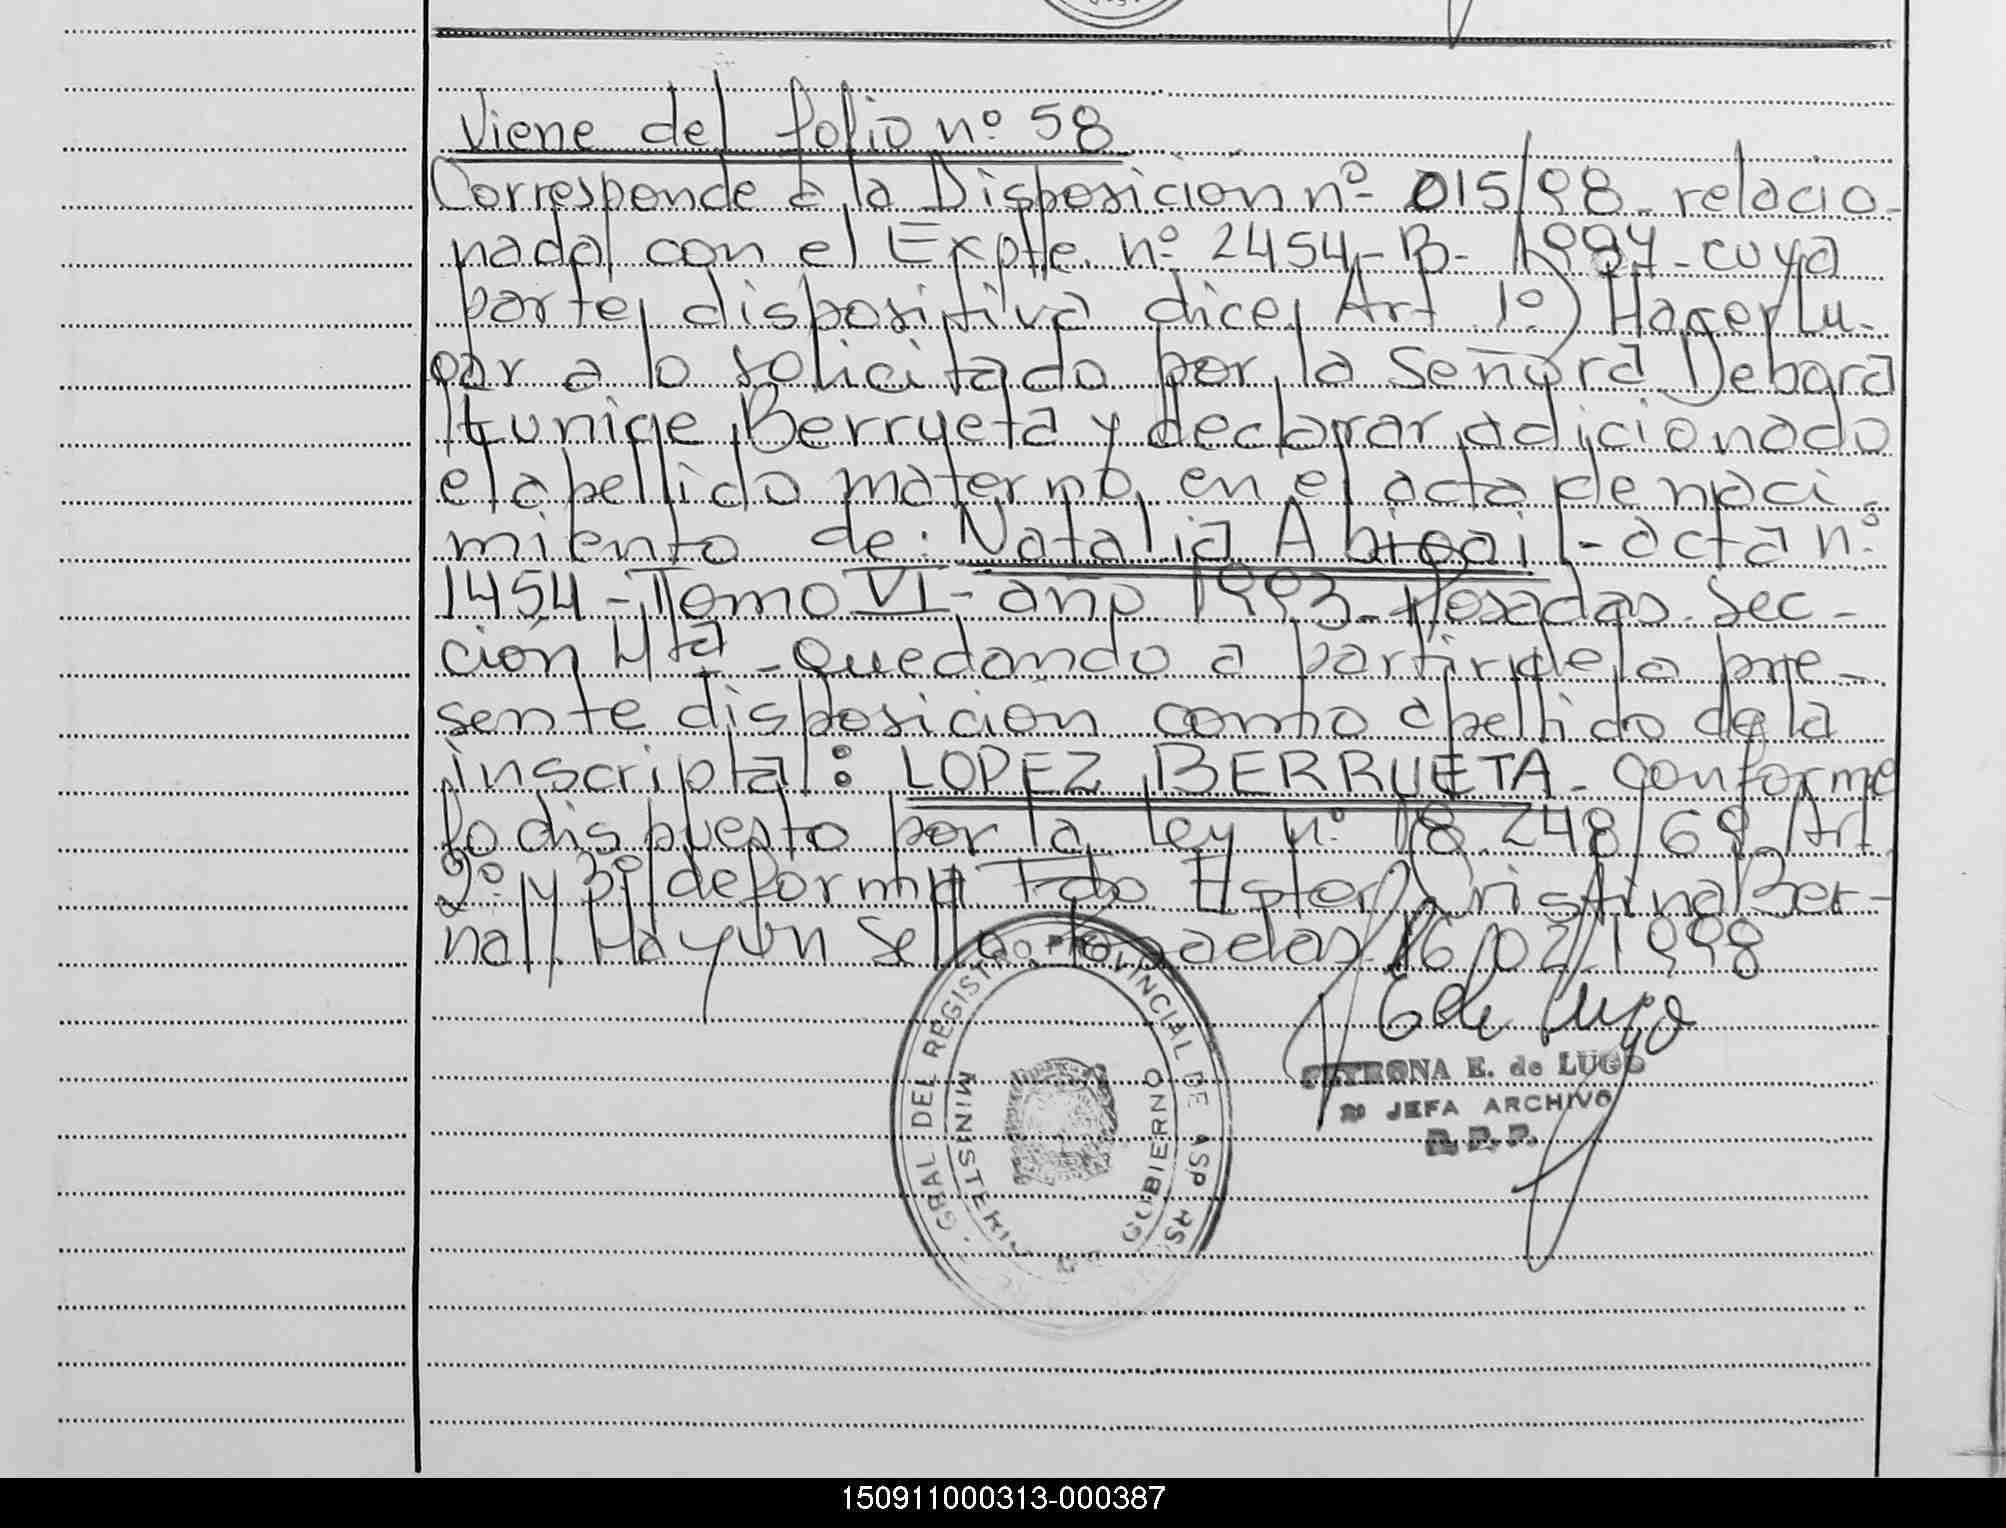 Viene del folio nº 58
Corresponde a la Disposición nº 015/98 - relacio-
nada con el Expte. nº 2454 - B - 1997 - cuya
parte dispositiva dice, Art 1º) Hacer lu-
gar a lo solicitado por la Señora Debora
Eunige Berrueta y declarar adicionado
el apellido materno en el acta de naci-
miento de: Natalia Abigail - acta nº
1454 - Tomo VI - año 1993 - Posadas. Sec-
ción 4ta - quedando a partir de la pre-
sente disposición como apellido de la
inscripta: LOPEZ BERRUETA - conforme
lo dispuesto por la Ley nº 18.248/69 Art.
2º y 3º de forma Fdo Ester Cristina Ber-
nal. Hay un Sello Posadas 16/02/1998
E de Lugo
PETRONA E. de LUGO
JEFA ARCHIVO
R. P. P.
GRAL DEL REGISTRO PROVINCIAL DE
MINISTERIO GOBIERNO
150911000313-000387